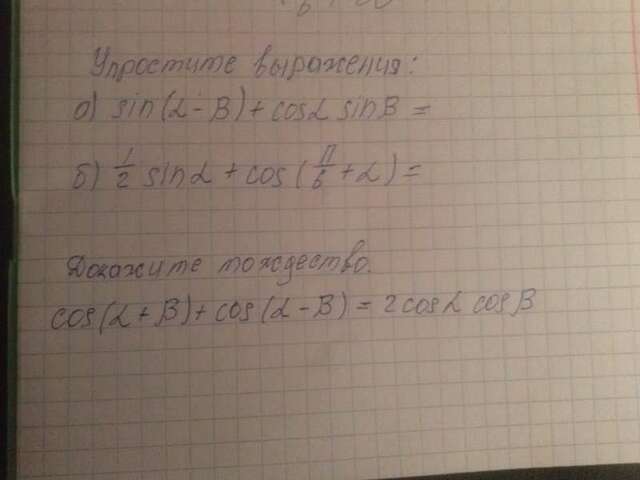 Упростите выражения:
а) sin(α - β) + cosα sinβ =
б) 1/2 sinα + cos(π/6 + α) =
Докажите тождество.
cos(α + β) + cos(α - β) = 2 cosα cosβ